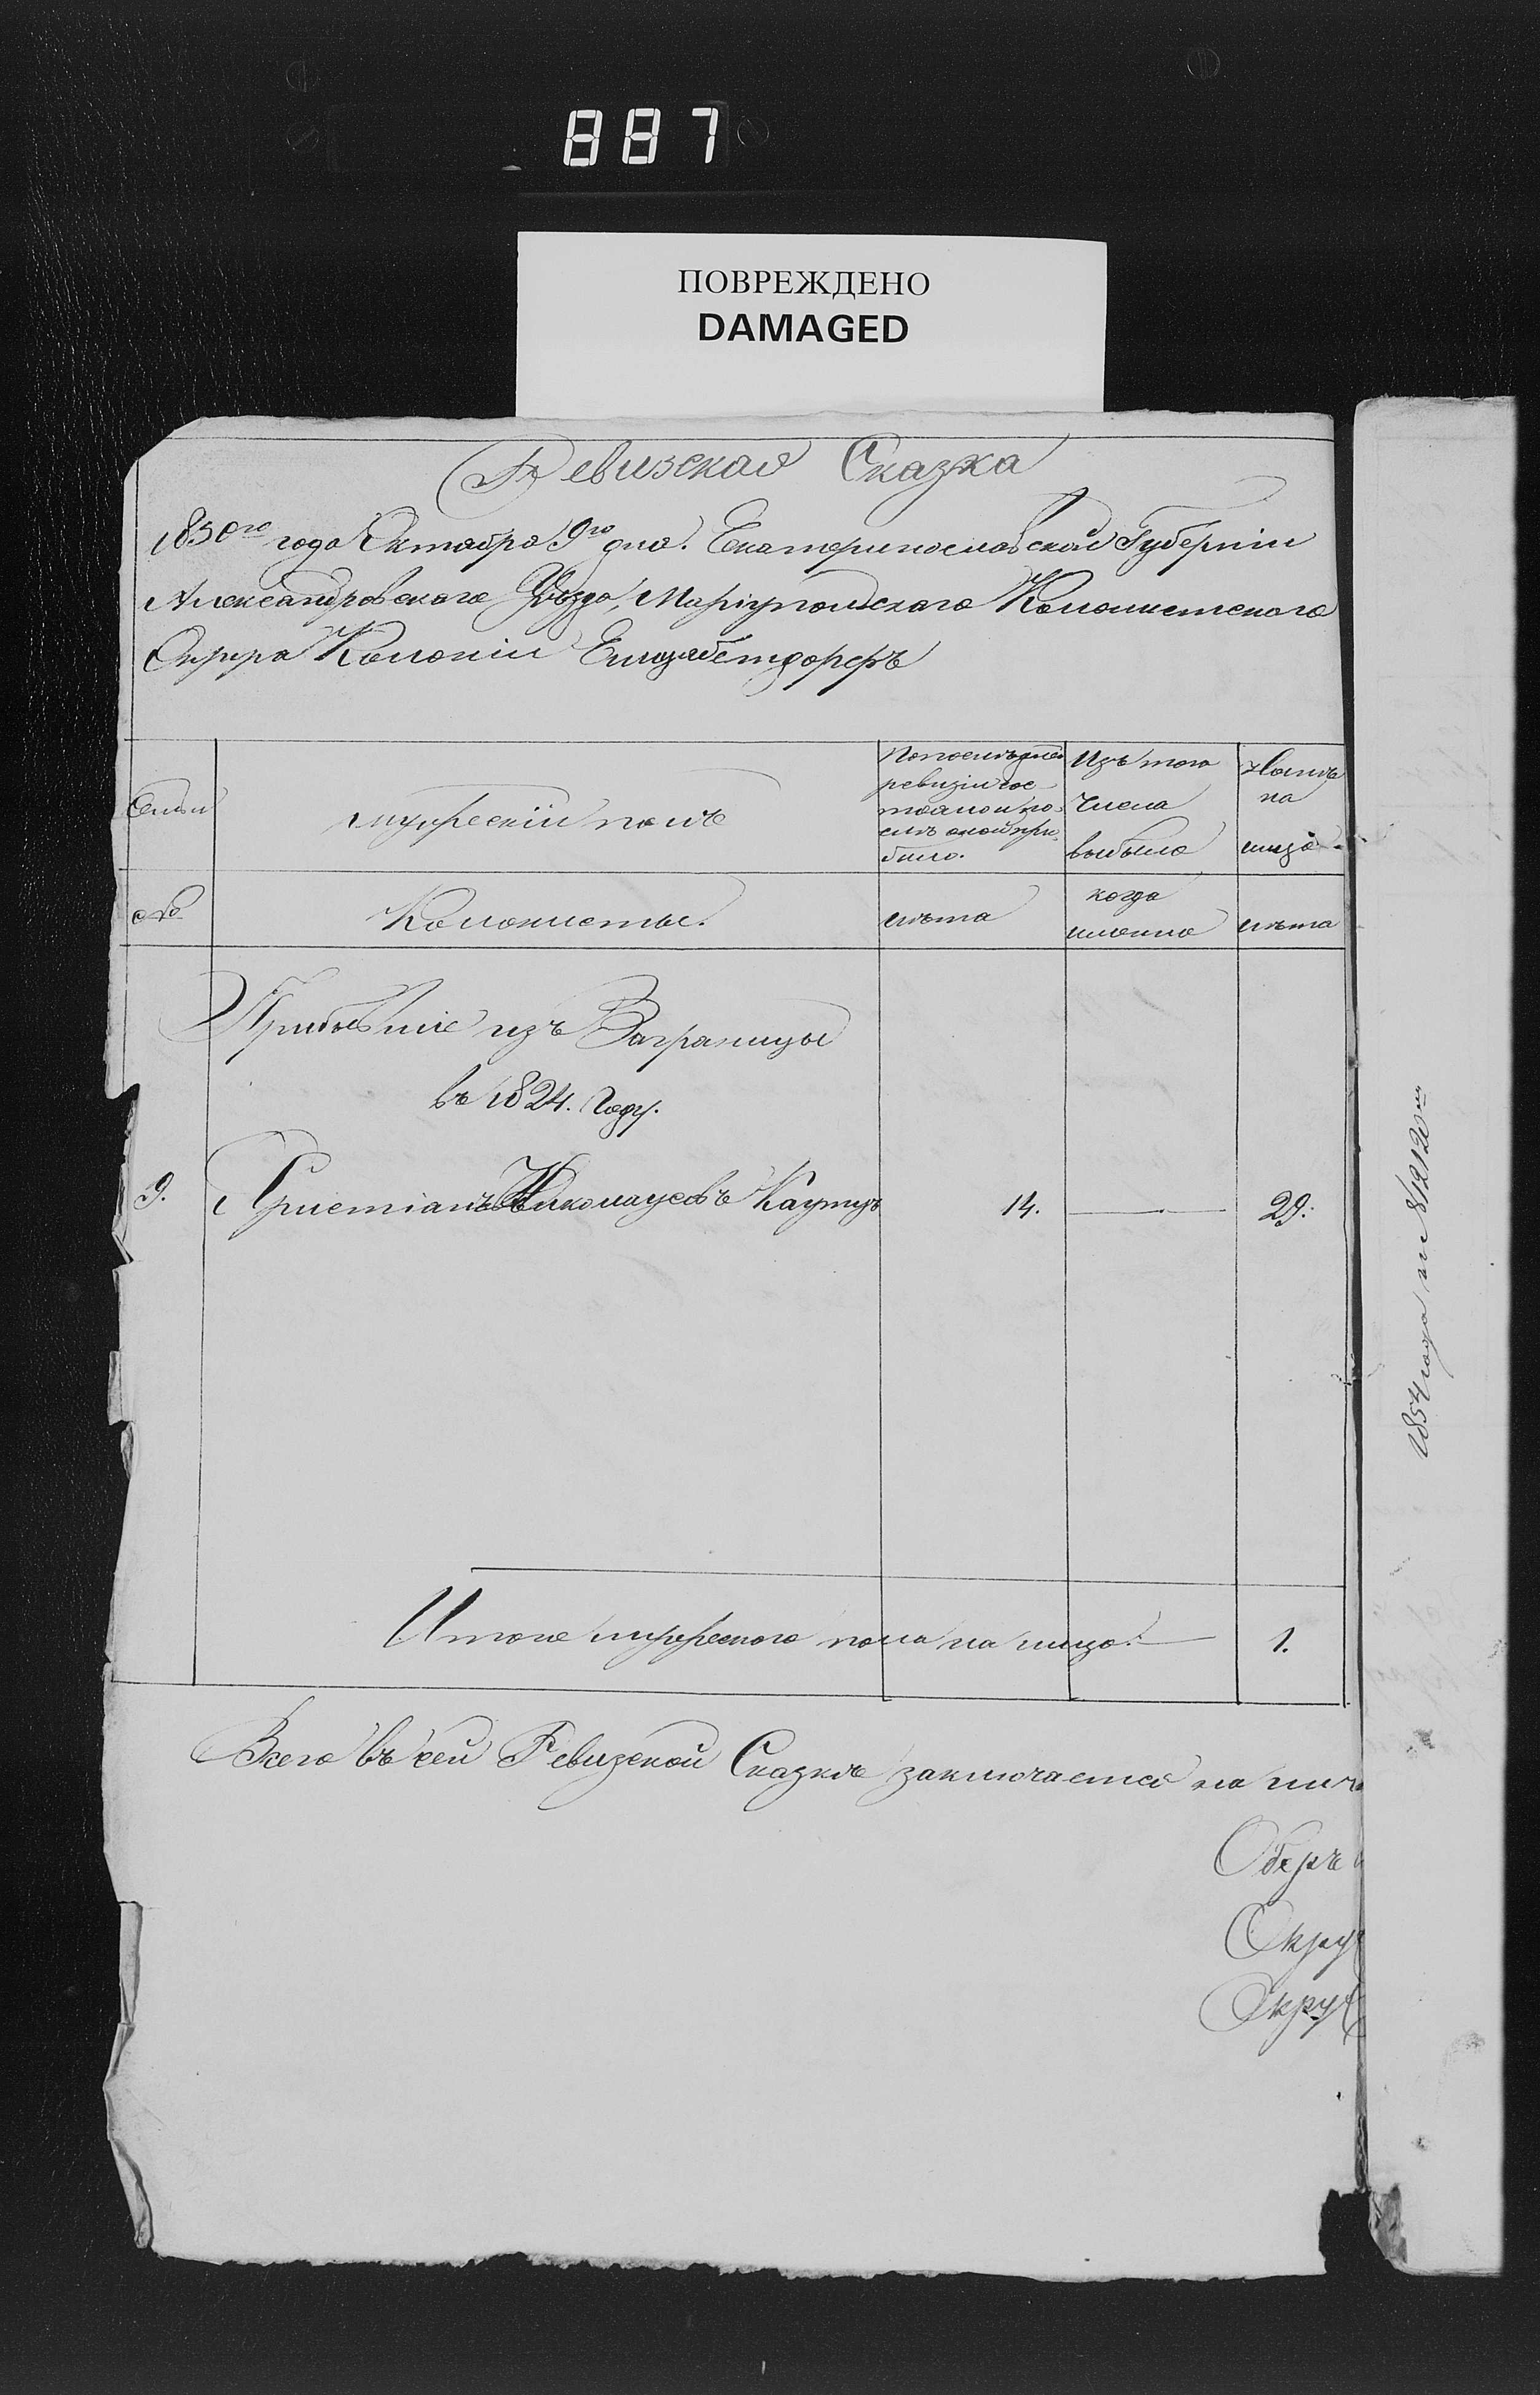 887
ПОВРЕЖДЕНО
DAMAGED
Ревизская Сказка
1850го года Октября 9го дня. Екатеринославской Губерніи
Александровскаго Уѣзда, Маріупольскаго Колонистскаго
Округа Колоніи Елизабетдорфъ
Семьи
мужескій полъ
По послѣдней
ревизіи сос-
тояло и по-
слѣ оной при-
было.
Изъ того
числа
выбыло
Нынѣ
на
лицо.
№
Колонисты.
лѣта
когда
именно
лѣта
Прибывшіе изъ Заграницы
въ 1824. Году.
9. Христіанъ Николаусовъ Каутцъ 14. 29.
Итого мужескаго пола на лицо. 1.
Всего въ сей Ревизской Сказкѣ заключается на лич
Оберъ
Окру
Окру
1854 года